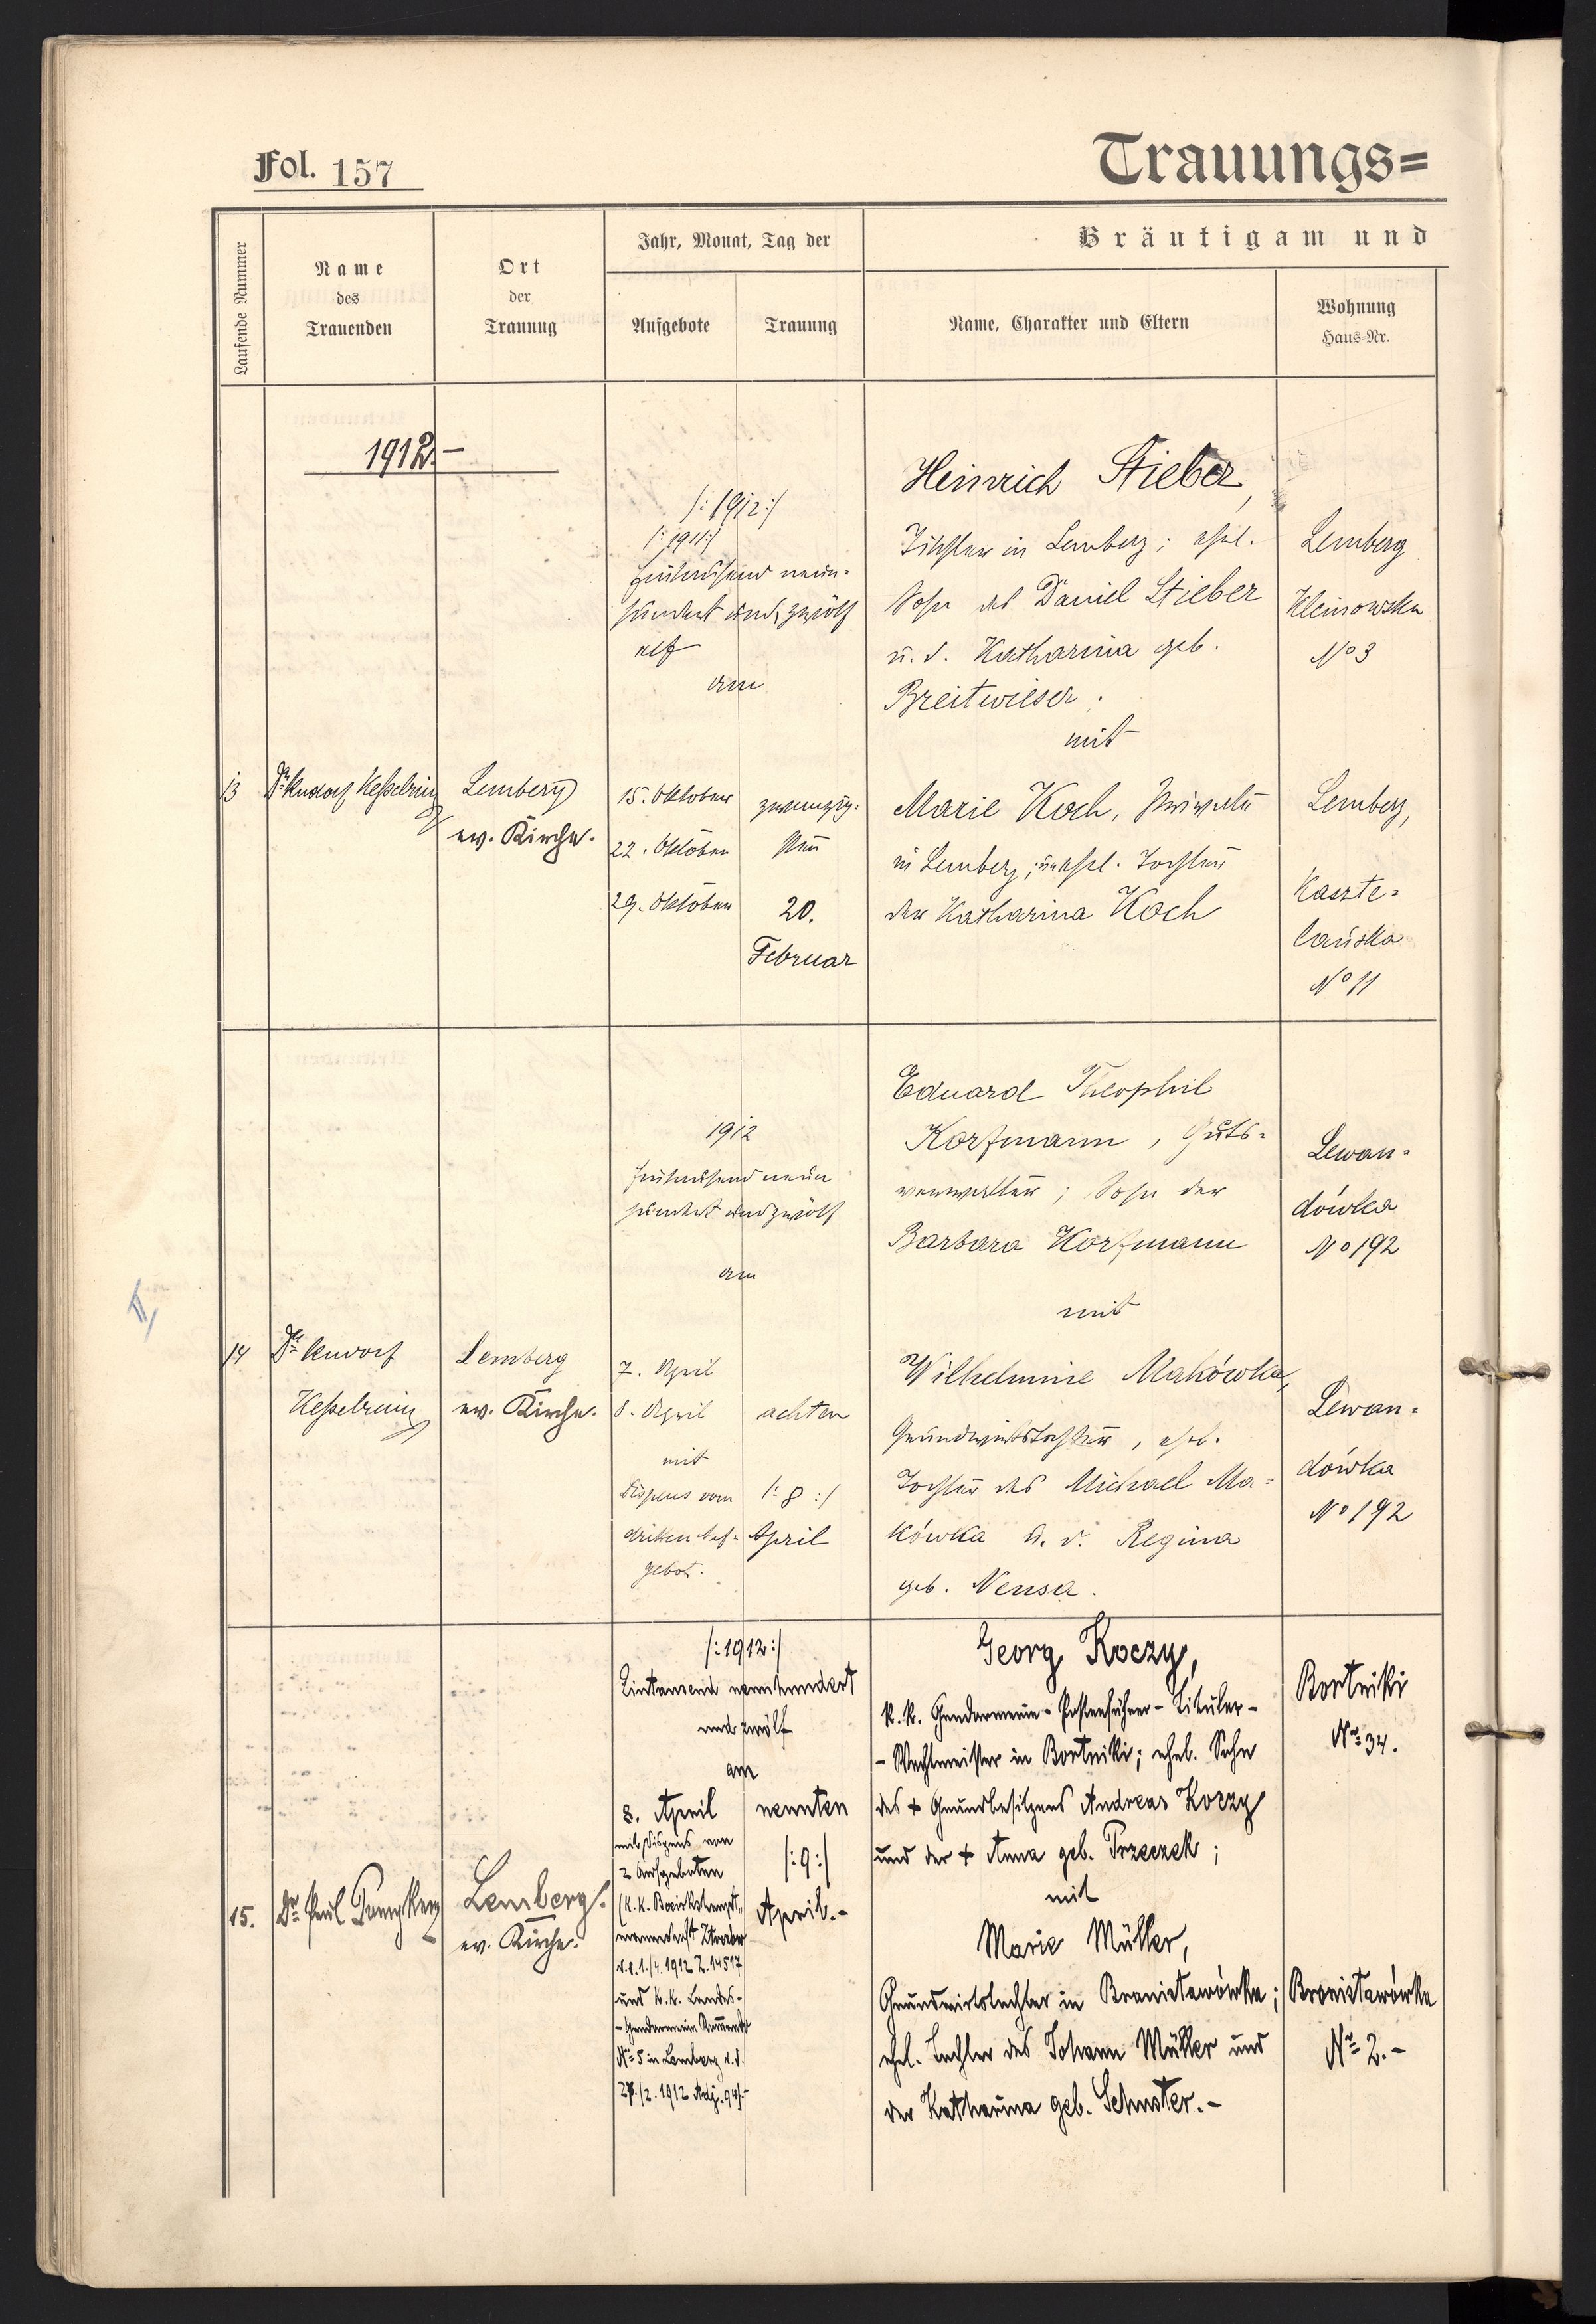 Fol. 157
Trauungs=
Laufende Nummer
Name
des
Trauenden
Ort
der
Trauung
Jahr, Monat, Tag der
Aufgebote
Trauung
Bräutigam und
Name, Charakter und Eltern
Wohnung
Haus=Nr.
1912.-
13
Lemberg
ev. Kirche.
/:1912:/
/:1911:/
Eintausend neun-
hundert und zwölf
elf
am
15. Oktober
22. Oktober
29. Oktober
zwanzig-
sten
20.
Februar
Heinrich Stieber,
Tischler in Lemberg; ehel.
Sohn des Daniel Stieber
u. d. Katharina geb.
Breitwieser.
mit
Marie Koch, Private
in Lemberg; unehel. Tochter
der Katharina Koch
Lemberg
Kleinowska
No 3
Lemberg,
Kaszte-
lańska
No 11
14
Dr
Kesselring
Lemberg
ev. Kirche.
1912
Eintausend neun
hundert und zwölf
am
7. April
8. April
mit
Dispens vom
dritten Auf-
gebot.
achten
/:8:/
April
Eduard Theophil
Korfmann, Guts-
verwalter; Sohn der
Barbara Korfmann
mit
Wilhelmine Makówka,
Grundwirtstochter, ehel.
Tochter des Michael Ma-
kówka u. d. Regina
geb. Nensa.
Lewan-
dówka
No 192
Lewan-
dówka
No 192
15.
Dr Paul
Lemberg.
ev. Kirche.
/:1912:/
Eintausend neunhundert
und zwölf
am
8. April
mit Dispens von
2 Aufgeboten
(k. k. Bezirkshaupt-
mannschaft
d. d. 1./4. 1912 Z. 14517
und k. k. Landes-
-Gendarmerie Kommando
No 5 in Lemberg d. d.
27./2. 1912 Adj. 94/.-
neunten
/:9:/
April.-
Georg Koczy,
k. k. Gendarmerie-Postenführer-Titular-
-Wachtmeister in Bortniki; ehel. Sohn
des + Grundbesitzers Andreas Koczy
und der + Anna geb. Przeczek;
mit
Marie Müller,
Grundwirtstochter in Bronisławówka;
ehel. Tochter des Johann Müller und
der Katharina geb. Schuster.-
Bortniki
No 34.
Bronisławówka
No 2.-